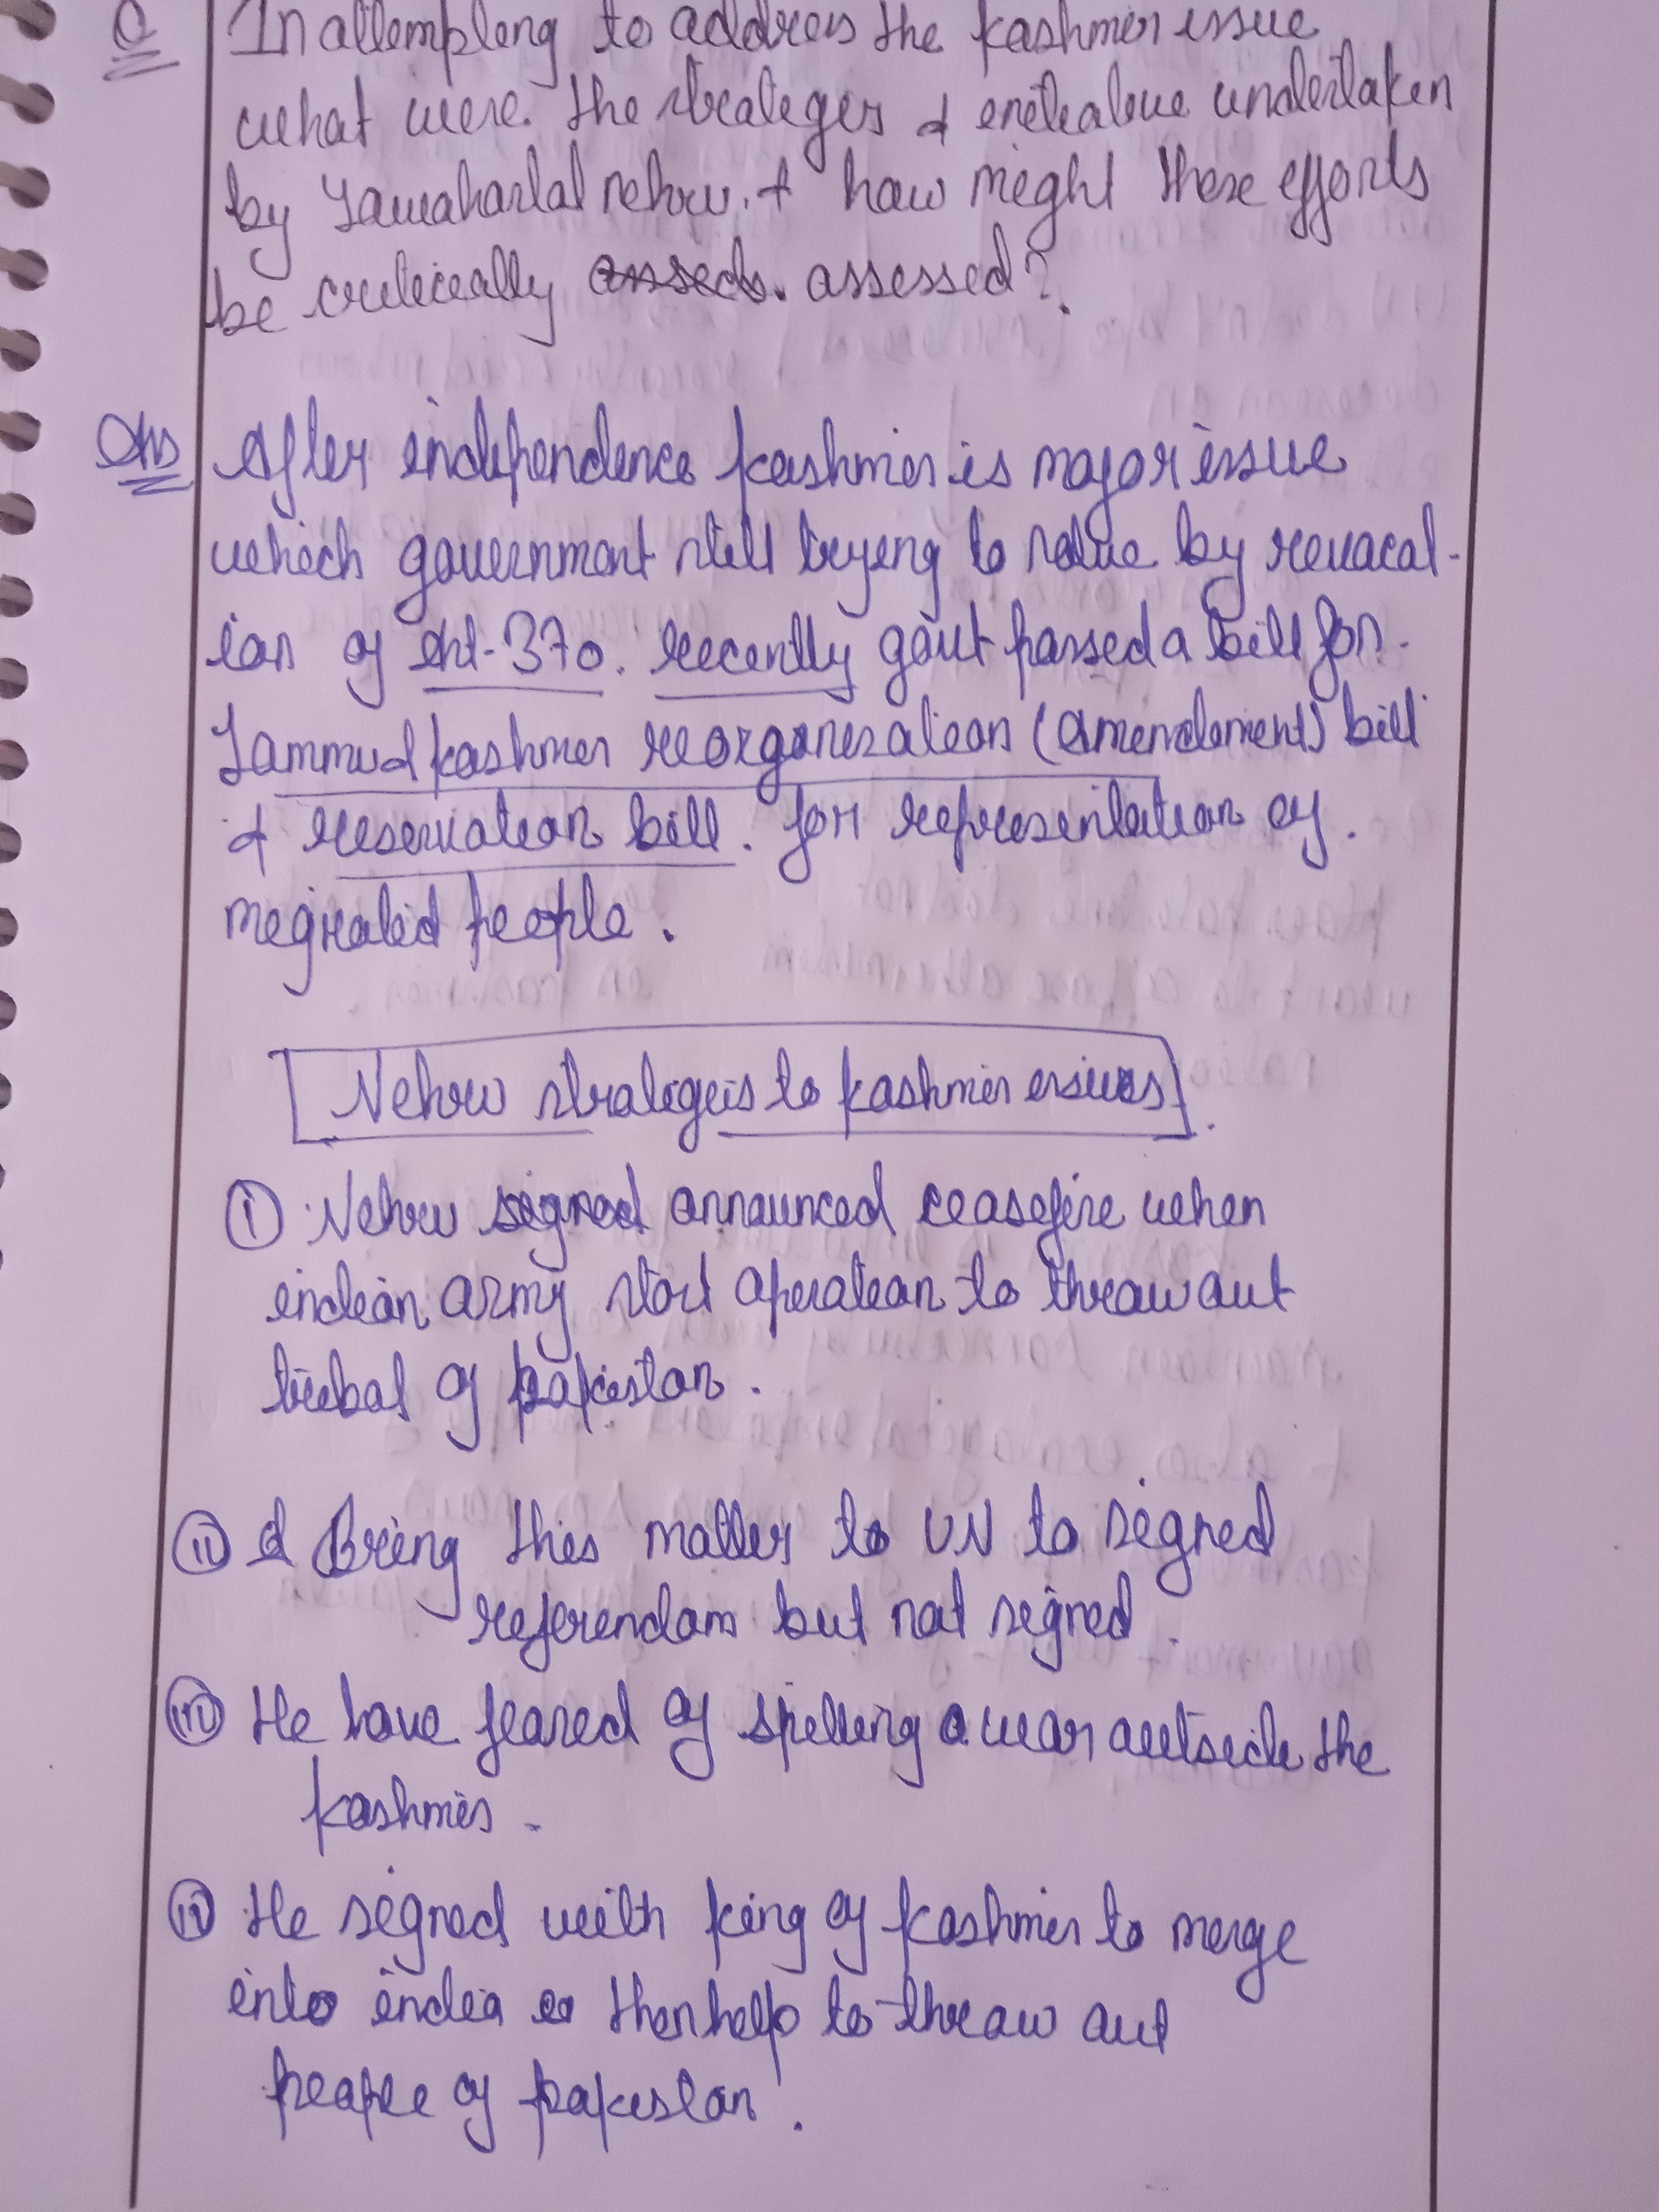 Q In attempting to address the Kashmir issue
what were the strategies & initiative undertaken
by Jawaharlal nehru. & how might these efforts
be critically assessed?
Ans After independence Kashmir is major issue
which government still trying to solve by revocat-
ion of Art-370. recently govt passed a bill for
Jammu & kashmir reorganization (amendment) bill
& reservation bill. for representation of
migrated people.
Nehru strategies to kashmir issues
(i) Nehru announced ceasefire when
indian army start operation to throw out
tribal of pakistan.
(ii) Bring this matter to UN to signed
referendam but not signed.
(iii) He have feared of spelling a war outside the
kashmir.
(iv) He signed with king of kashmir to merge
into india then help to throw out
people of pakistan.